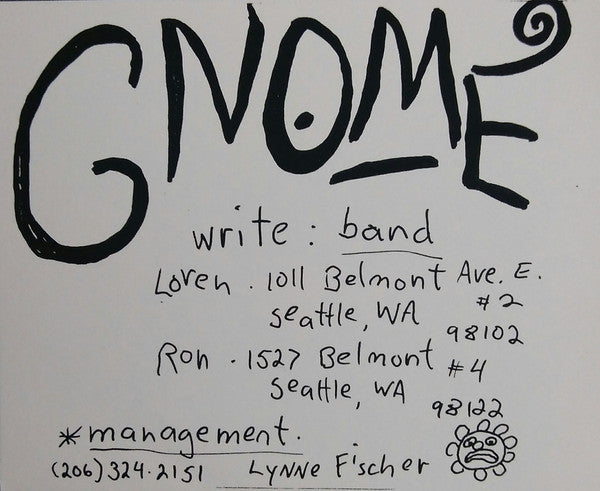 GNOME
write : band
Loren . 1011 Belmont Ave. E.
#2
Seattle, WA
98102
Ron . 1527 Belmont #4
Seattle, WA
98122
*management.
(206) 324-2151 Lynne Fischer